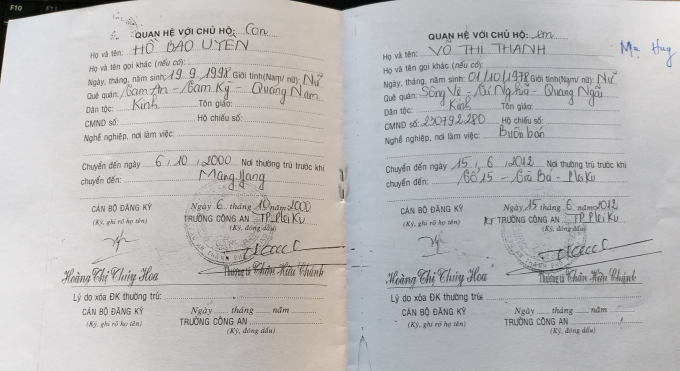 F10
F11
QUAN HỆ VỚI CHỦ HỘ: Con
Họ và tên: HỒ BẢO UYÊN
Họ và tên gọi khác (nếu có):
Ngày, tháng, năm sinh: 19.9.1998 Giới tính(Nam/ nữ): Nữ
Quê quán: Cam An - Cam Kỳ - Quảng Nam
Dân tộc: Kinh Tôn giáo:
CMND số: Hộ chiếu số:
Nghề nghiệp, nơi làm việc:
Chuyển đến ngày 6.10.2000 Nơi thường trú trước khi
chuyển đến: Mang Yang
Ngày 6 tháng 10 năm 2000
CÁN BỘ ĐĂNG KÝ TRƯỞNG CÔNG AN TP PleiKu
(Ký, ghi rõ họ tên) (Ký, đóng dấu)
Hoàng Thị Thúy Hoa Thượng tá Thân Hữu Chánh
Lý do xóa ĐK thường trú:
CÁN BỘ ĐĂNG KÝ Ngày ..... tháng ..... năm .....
(Ký, ghi rõ họ tên) TRƯỞNG CÔNG AN
(Ký, đóng dấu)
QUAN HỆ VỚI CHỦ HỘ: em
Họ và tên: VÕ THỊ THANH
Họ và tên gọi khác (nếu có):
Ngày, tháng, năm sinh: 01/10/1978 Giới tính(Nam/ nữ): Nữ
Quê quán: Sông Vệ - Tư Nghĩa - Quảng Ngãi
Dân tộc: Kinh Tôn giáo:
CMND số: 230792280 Hộ chiếu số:
Nghề nghiệp, nơi làm việc: Buôn bán
Chuyển đến ngày 15.6.2012 Nơi thường trú trước khi
chuyển đến: Tổ 15 - Trà Bá - PleiKu
Ngày 15 tháng 6 năm 2012
CÁN BỘ ĐĂNG KÝ TRƯỞNG CÔNG AN TP PleiKu
(Ký, ghi rõ họ tên) (Ký, đóng dấu)
Hoàng Thị Thúy Hoa Thượng tá Thân Hữu Chánh
Lý do xóa ĐK thường trú:
CÁN BỘ ĐĂNG KÝ Ngày ..... tháng ..... năm .....
(Ký, ghi rõ họ tên) TRƯỞNG CÔNG AN
(Ký, đóng dấu)